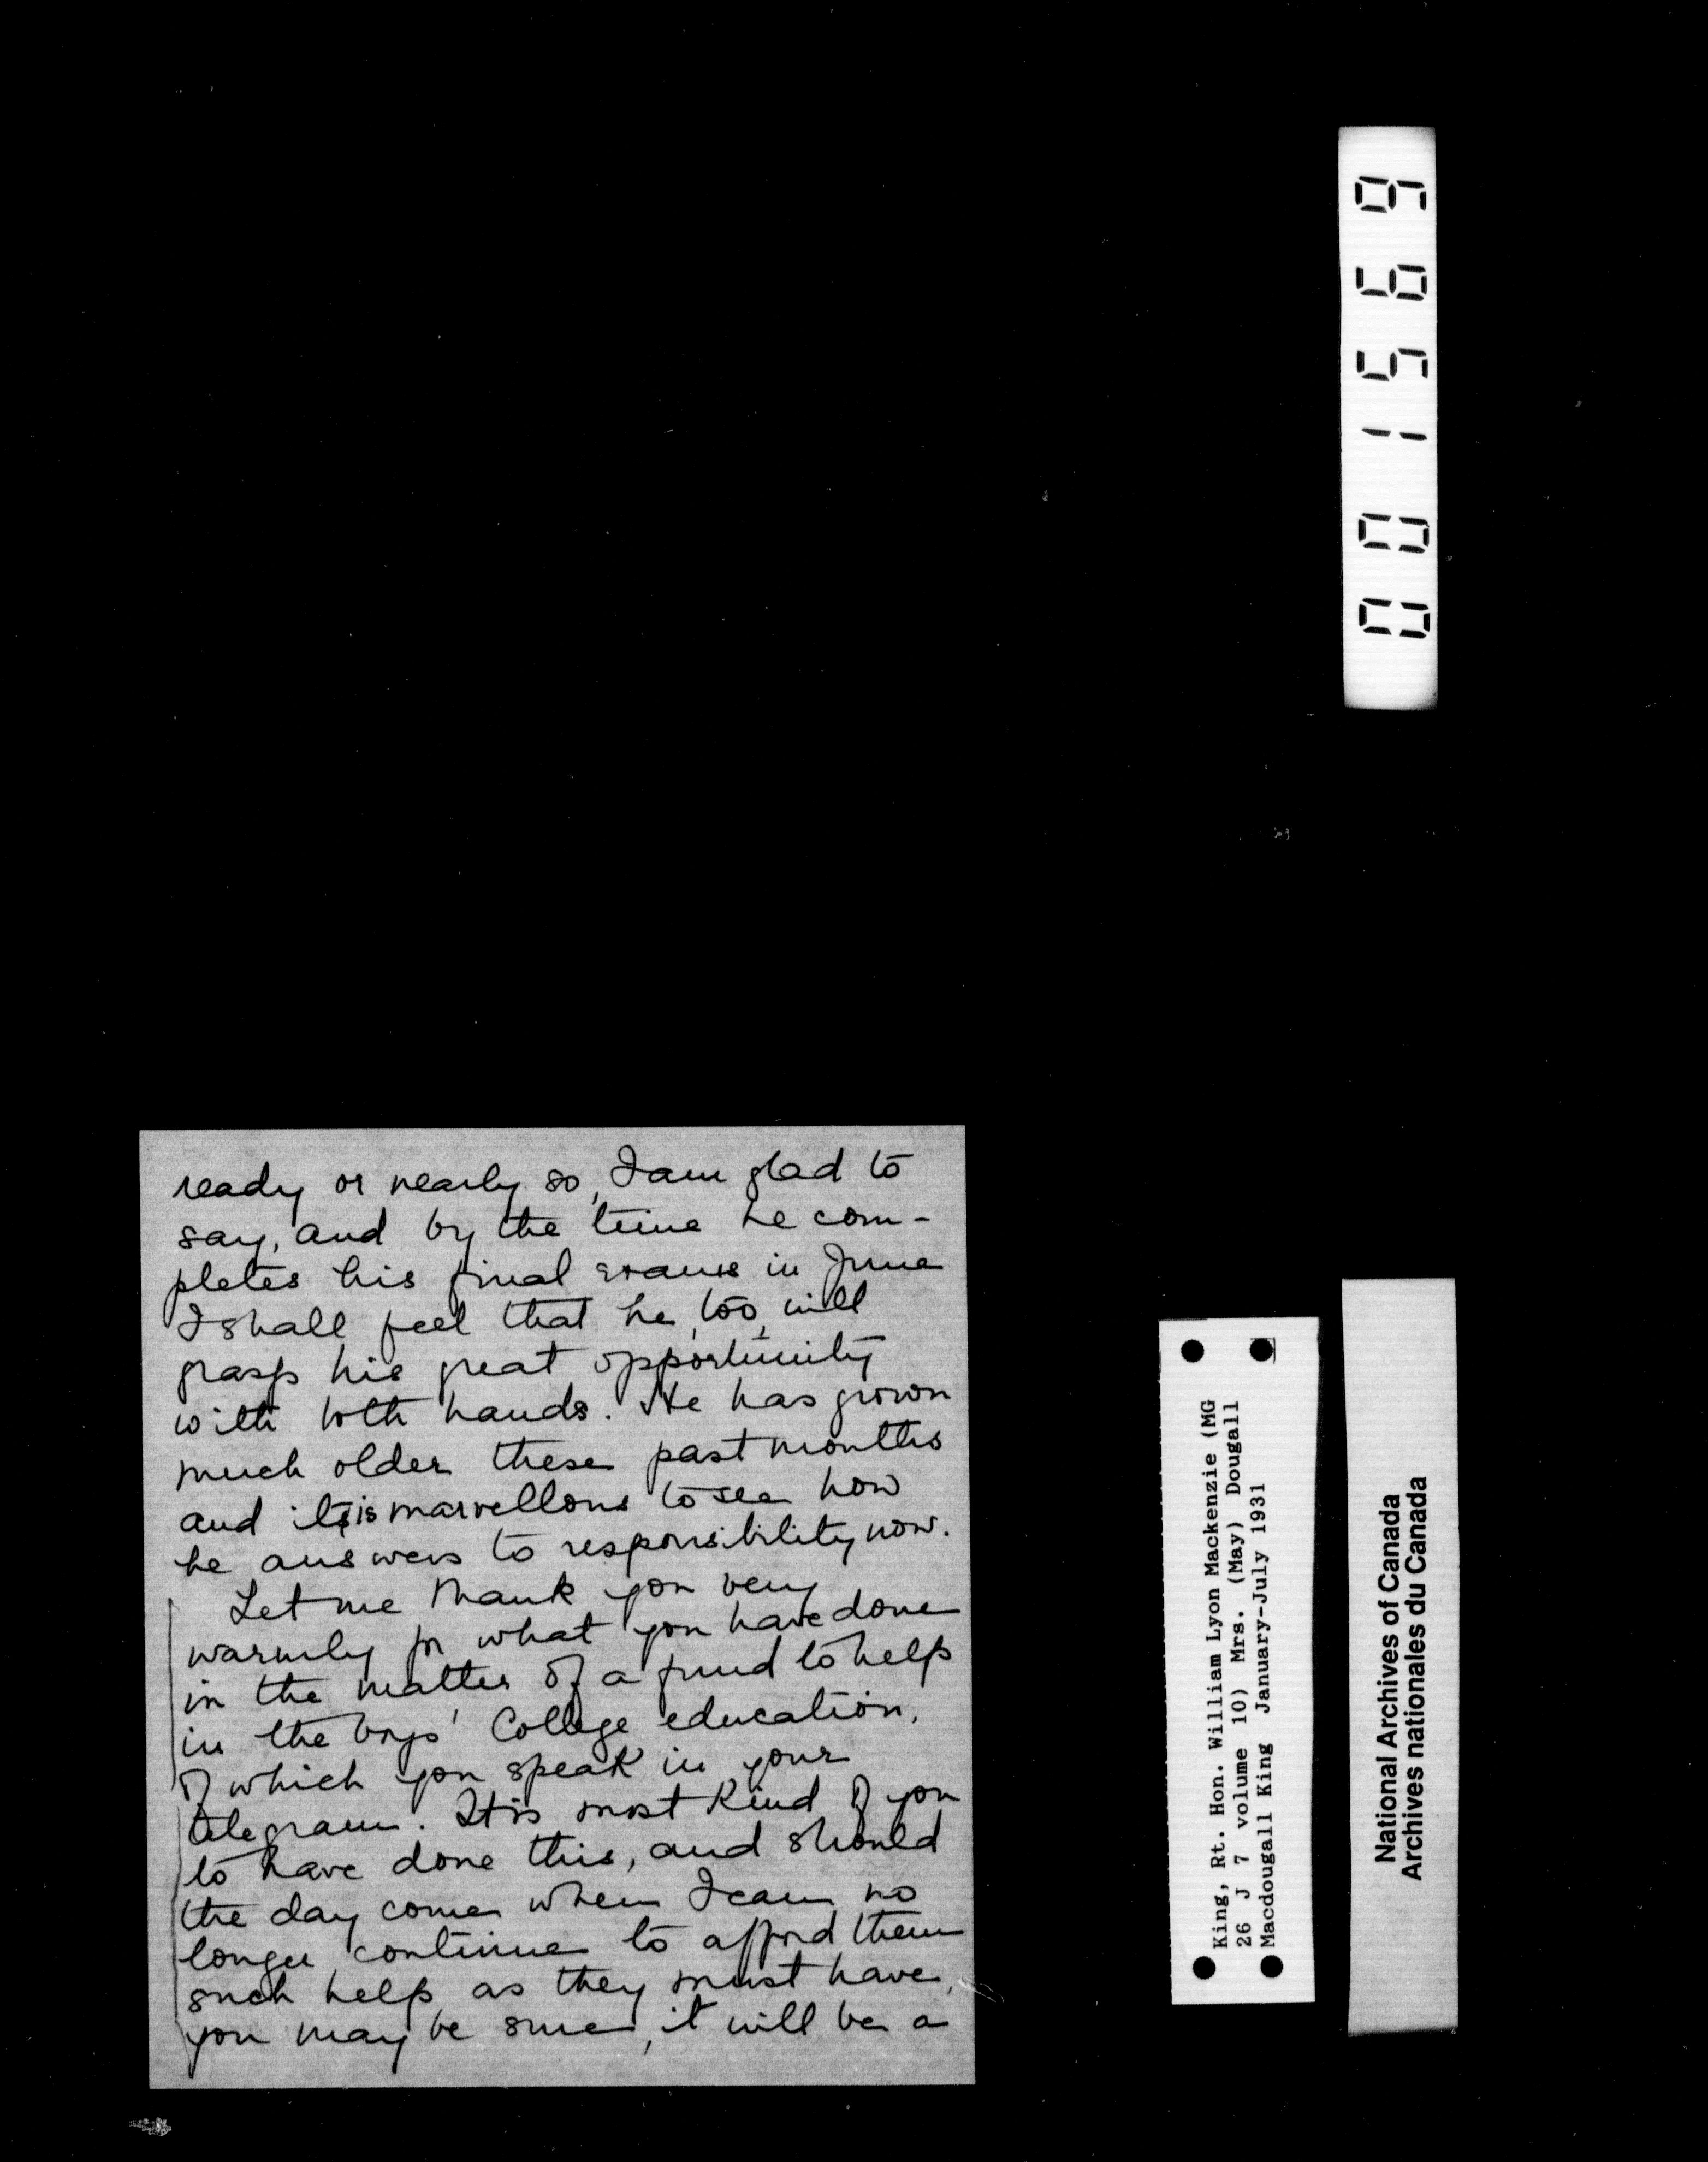 ready or nearly so, I am glad to
say, and by the time he com-
pletes his final exams in June
I shall feel that he, too, will
grasp his great opportunity
with both hands. He has grown
much older these past months
and it is marvellous to see how
he answers to responsibility now.
Let me thank you very
warmly for what you have done
in the matter of a fund to help
in the boys' College education,
of which you speak in your
telegram. It is most kind of you
to have done this, and should
the day come when I can no
longer continue to afford them
such help as they must have,
you may be sure, it will be a
001569
King, Rt. Hon. William Lyon Mackenzie (MG
26 J 7 volume 10) Mrs. (May) Dougall
Macdougall King January-July 1931
National Archives of Canada
Archives nationales du Canada